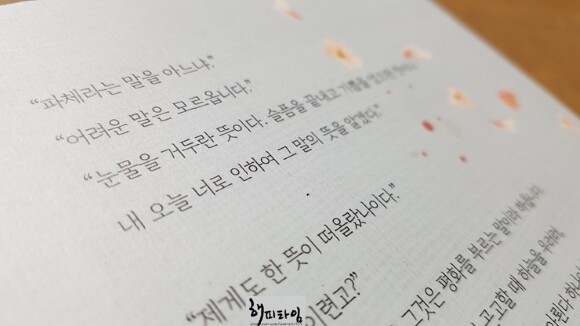 “파체라는 말을 아느냐.”
“어려운 말은 모르옵니다.”
“눈물을 거두란 뜻이다. 슬픔을 끝내고 기쁨을
내 오늘 너로 인하여 그 말의 뜻을 알겠다.”
“제게도 한 뜻이 떠올랐나이다.”
이런고?”
그것은 평화를 부르는 말이라
고고할 때 하늘을
해피타임